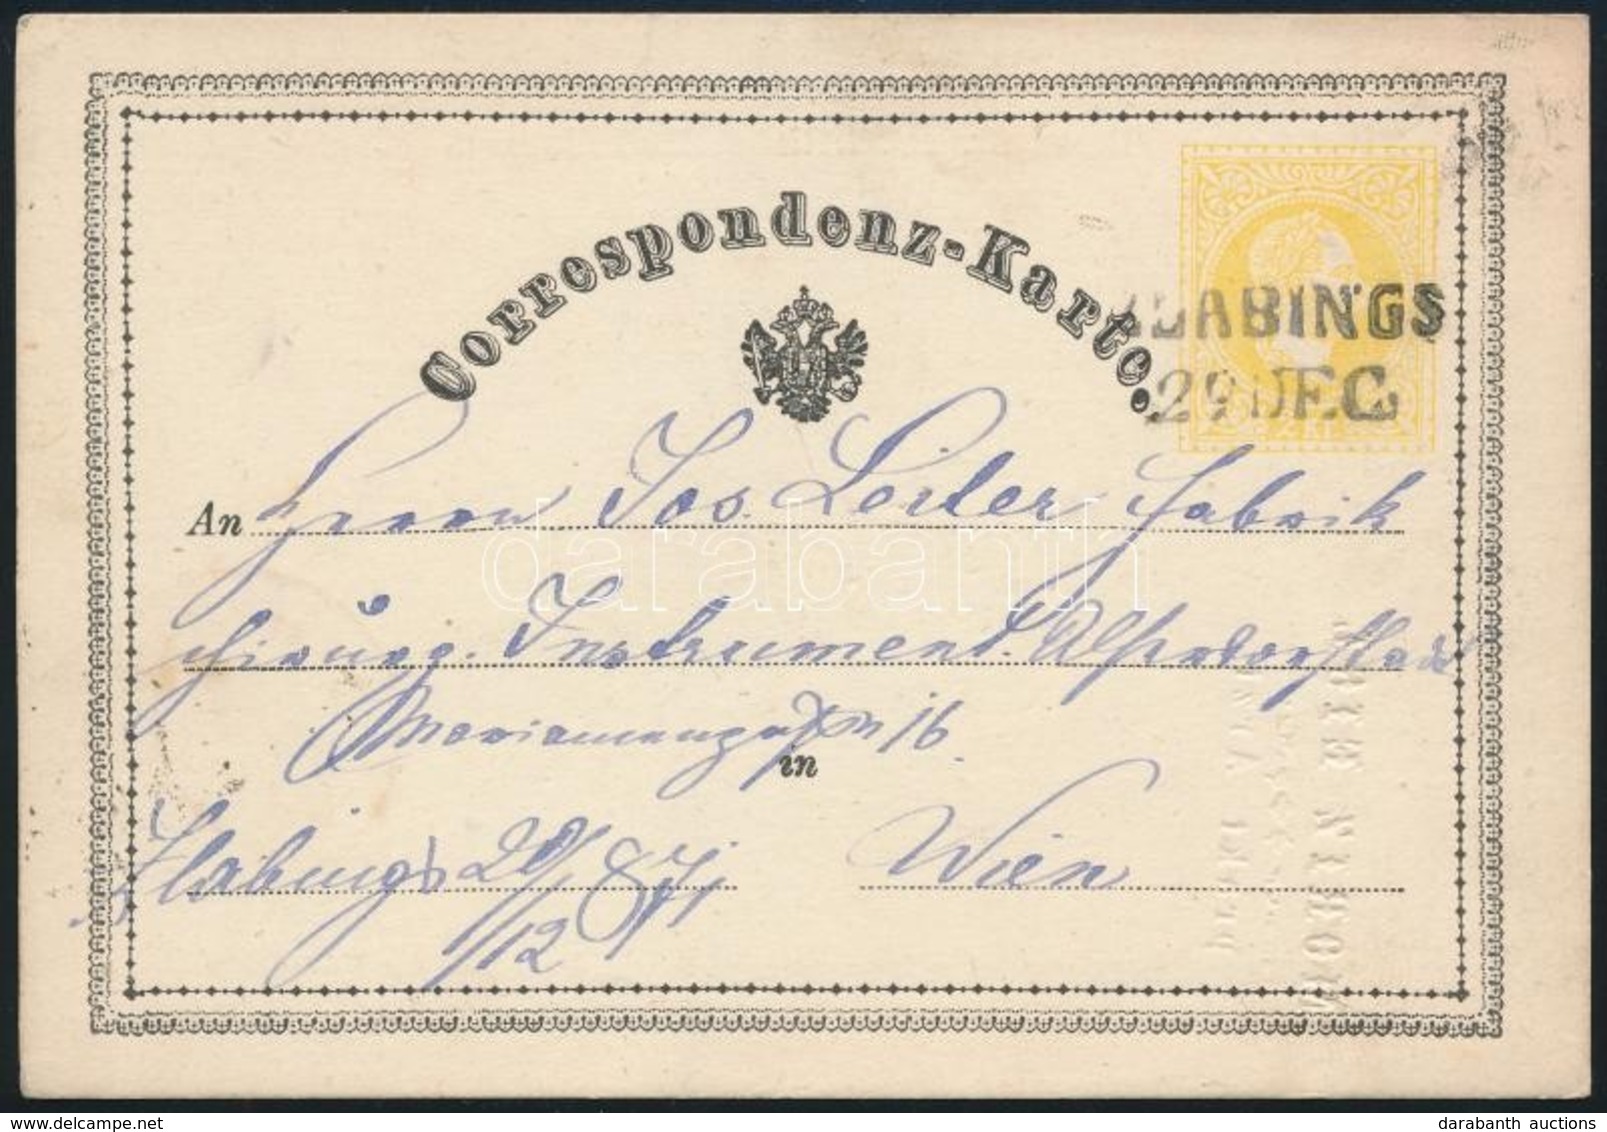 Correspondenz-Karte.
ZLABINGS
29 DEC
An Herrn Jos. Leiter Fabrik
chirurg. Instrument. Alservorstadt
Mariannengasse N 16
in
Zlabings 29/12 871
Wien
darabanth
darabanth auctions
www.delcampe.net